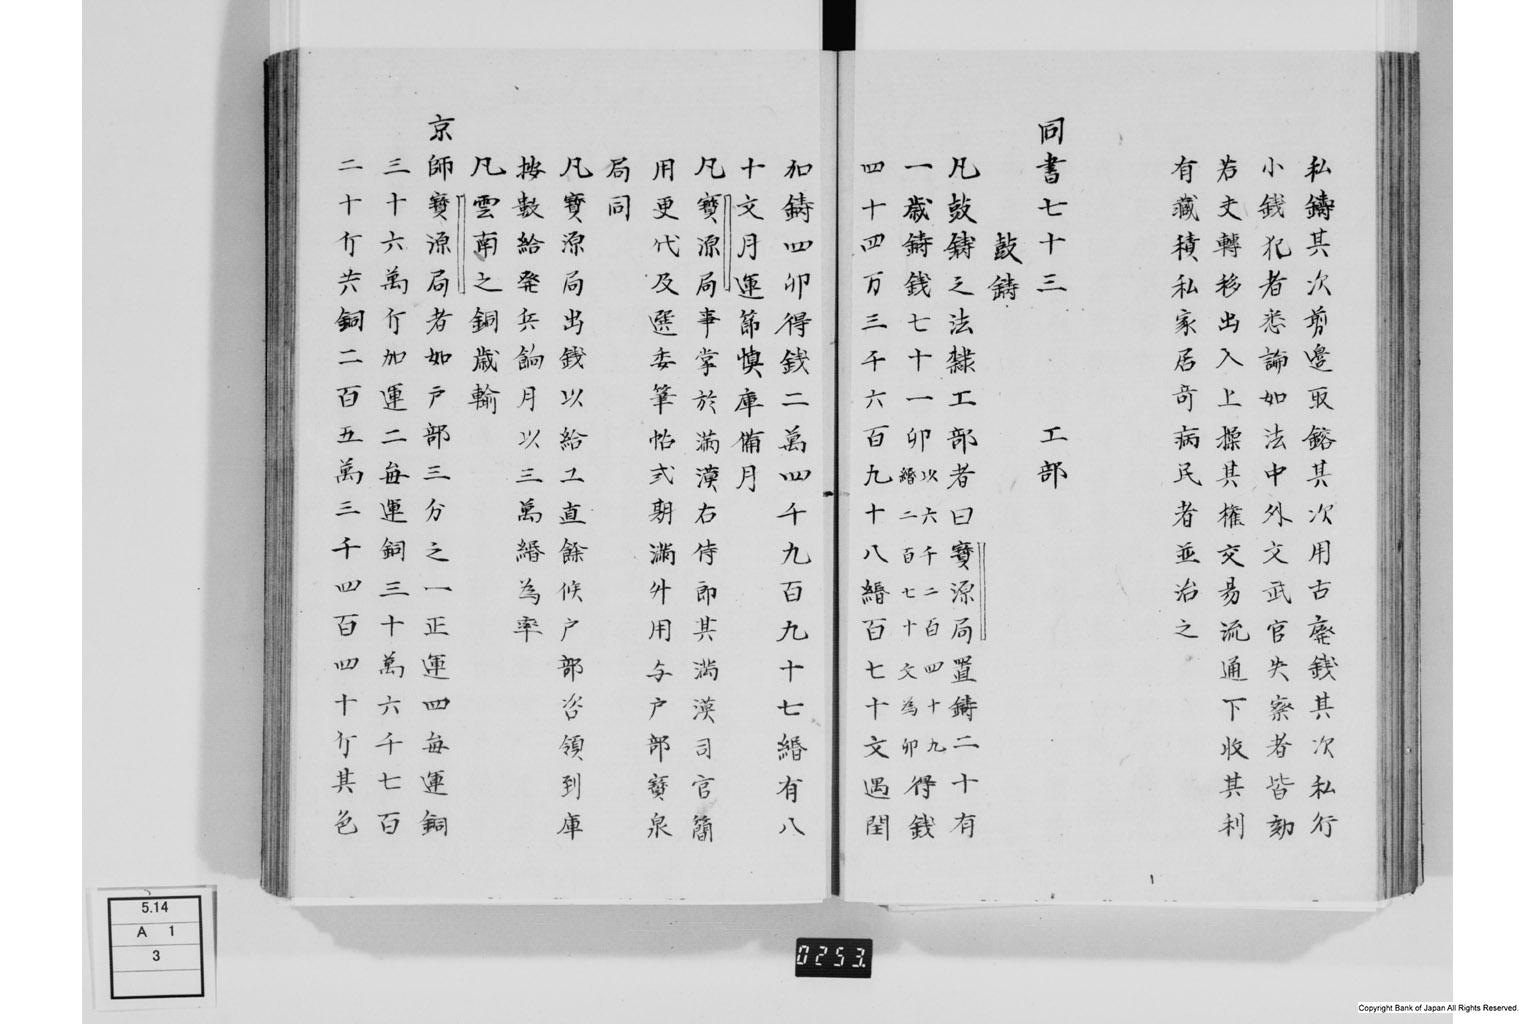 私鑄其次剪邊取鎔其次用古廢銭其次私行
小銭犯者悉論如法中外文武官失察者皆劾
若丈轉移出入上操其権交易流通下收其利
有藏積私家居奇病民者並治之
同書七十三　工部
鼓鑄
凡鼓鑄之法隷工部者曰寶源局置鑄二十有
一歳鋳銭七十一卯以六千二百四十九緡二百七十文為卯得銭
四十四万三千六百九十八緡百七十文遇閏
加鋳四卯得銭二萬四千九百九十七緡有八
十文月運節慎庫備月
凡寶源局事掌於満漢右侍郎其満漢司官簡
用更代及選委筆帖式期満升用与户部寶泉
局同
凡寶源局出銭以給工直餘候户部咨領到庫
按數給発兵餉月以三萬緡為率
凡雲南之銅歳輸
京師寶源局者如户部三分之一正運四毎運銅
三十六萬斤加運二毎運銅三十萬六千七百
二十斤共銅二百五萬三千四百四十斤其色
5.14
A 1
3
0253.
Copyright Bank of Japan All Rights Reserved.